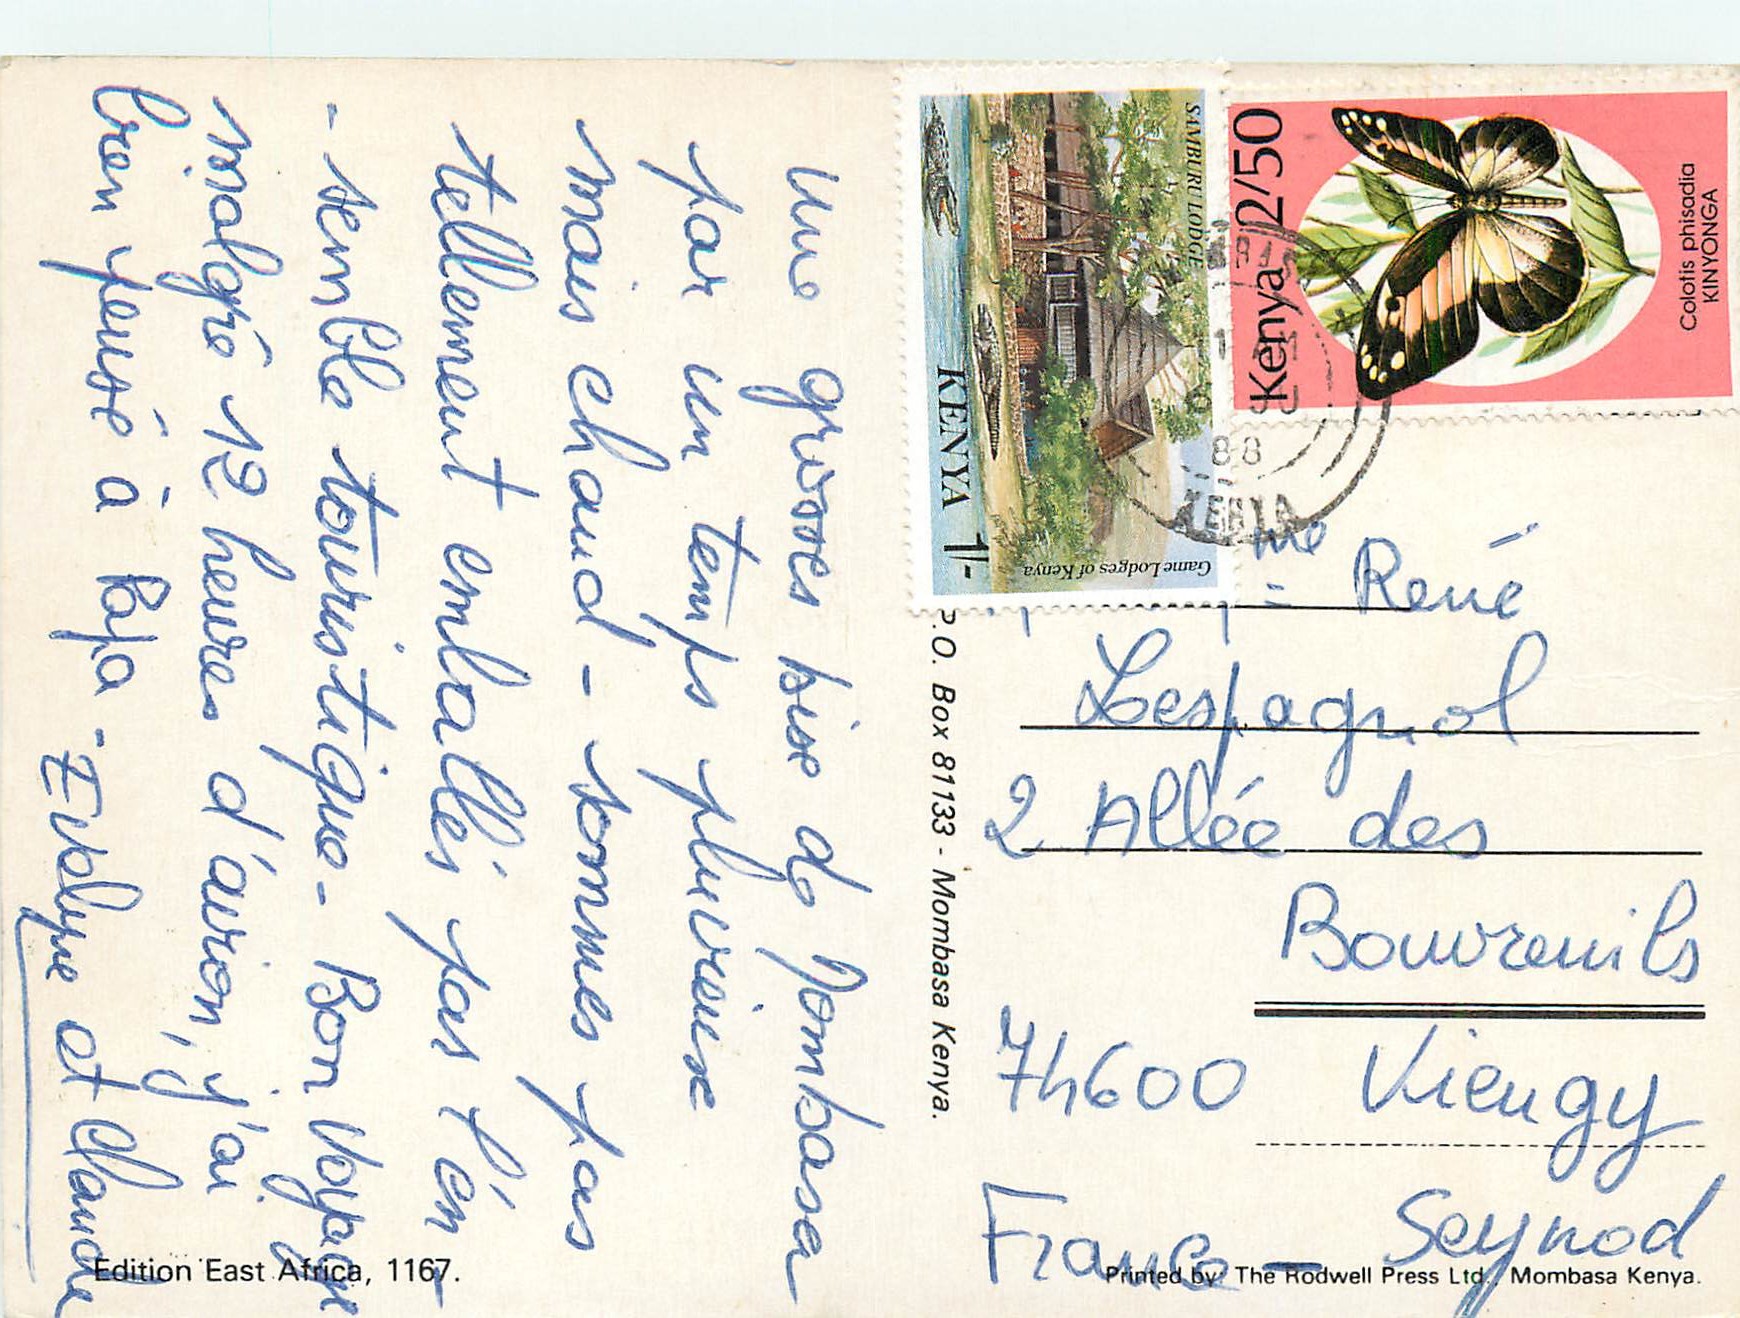 Une grosses bise de Mombasa
par un temps pluvieux
mais chaud - sommes pas
tellement emballés par l'en
- semble touristique - Bon Voyage
malgré 12 heures d'avion, j'ai
bien pensé à Papa - Evelyne et Claude
SAMBURU LODGE
KENYA 1/-
Game Lodges of Kenya
Kenya 2/50
Colotis phisadia
KINYONGA
88
KENYA
P.O. Box 81133 - Mombasa Kenya.
me René
Lespagnol
2 Allée des
Bouvreuils
74600 Vieugy
Seynod
France -
Edition East Africa, 1167.
Printed by: The Rodwell Press Ltd., Mombasa Kenya.